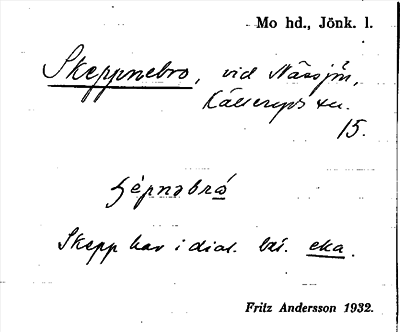 Mo hd., Jönk. l.
Skeppnebro, vid Nässjön,
Källeryds sn.
15.
ʂépnəbrö
Skepp har i dial. bet. eka.
Fritz Andersson 1932.